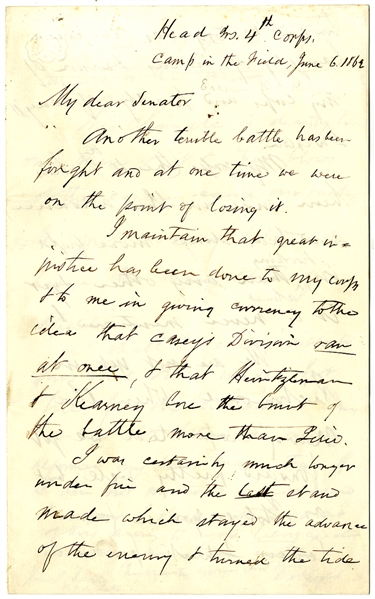 Head Qrs. 4th Corps.
Camp in the Field, June 6. 1862
My dear Senator
Another terrible battle has been
fought and at one time we were
on the point of losing it.
I maintain that great in=
justice has been done to my corps
& to me in giving currency to the
idea that Casey's Division ran
at once, & that Heintzleman
& Kearney bore the brunt of
the battle more than I did.
I was certainly much longer
under fire and the last stand
made which stayed the advance
of the enemy & turned the tide